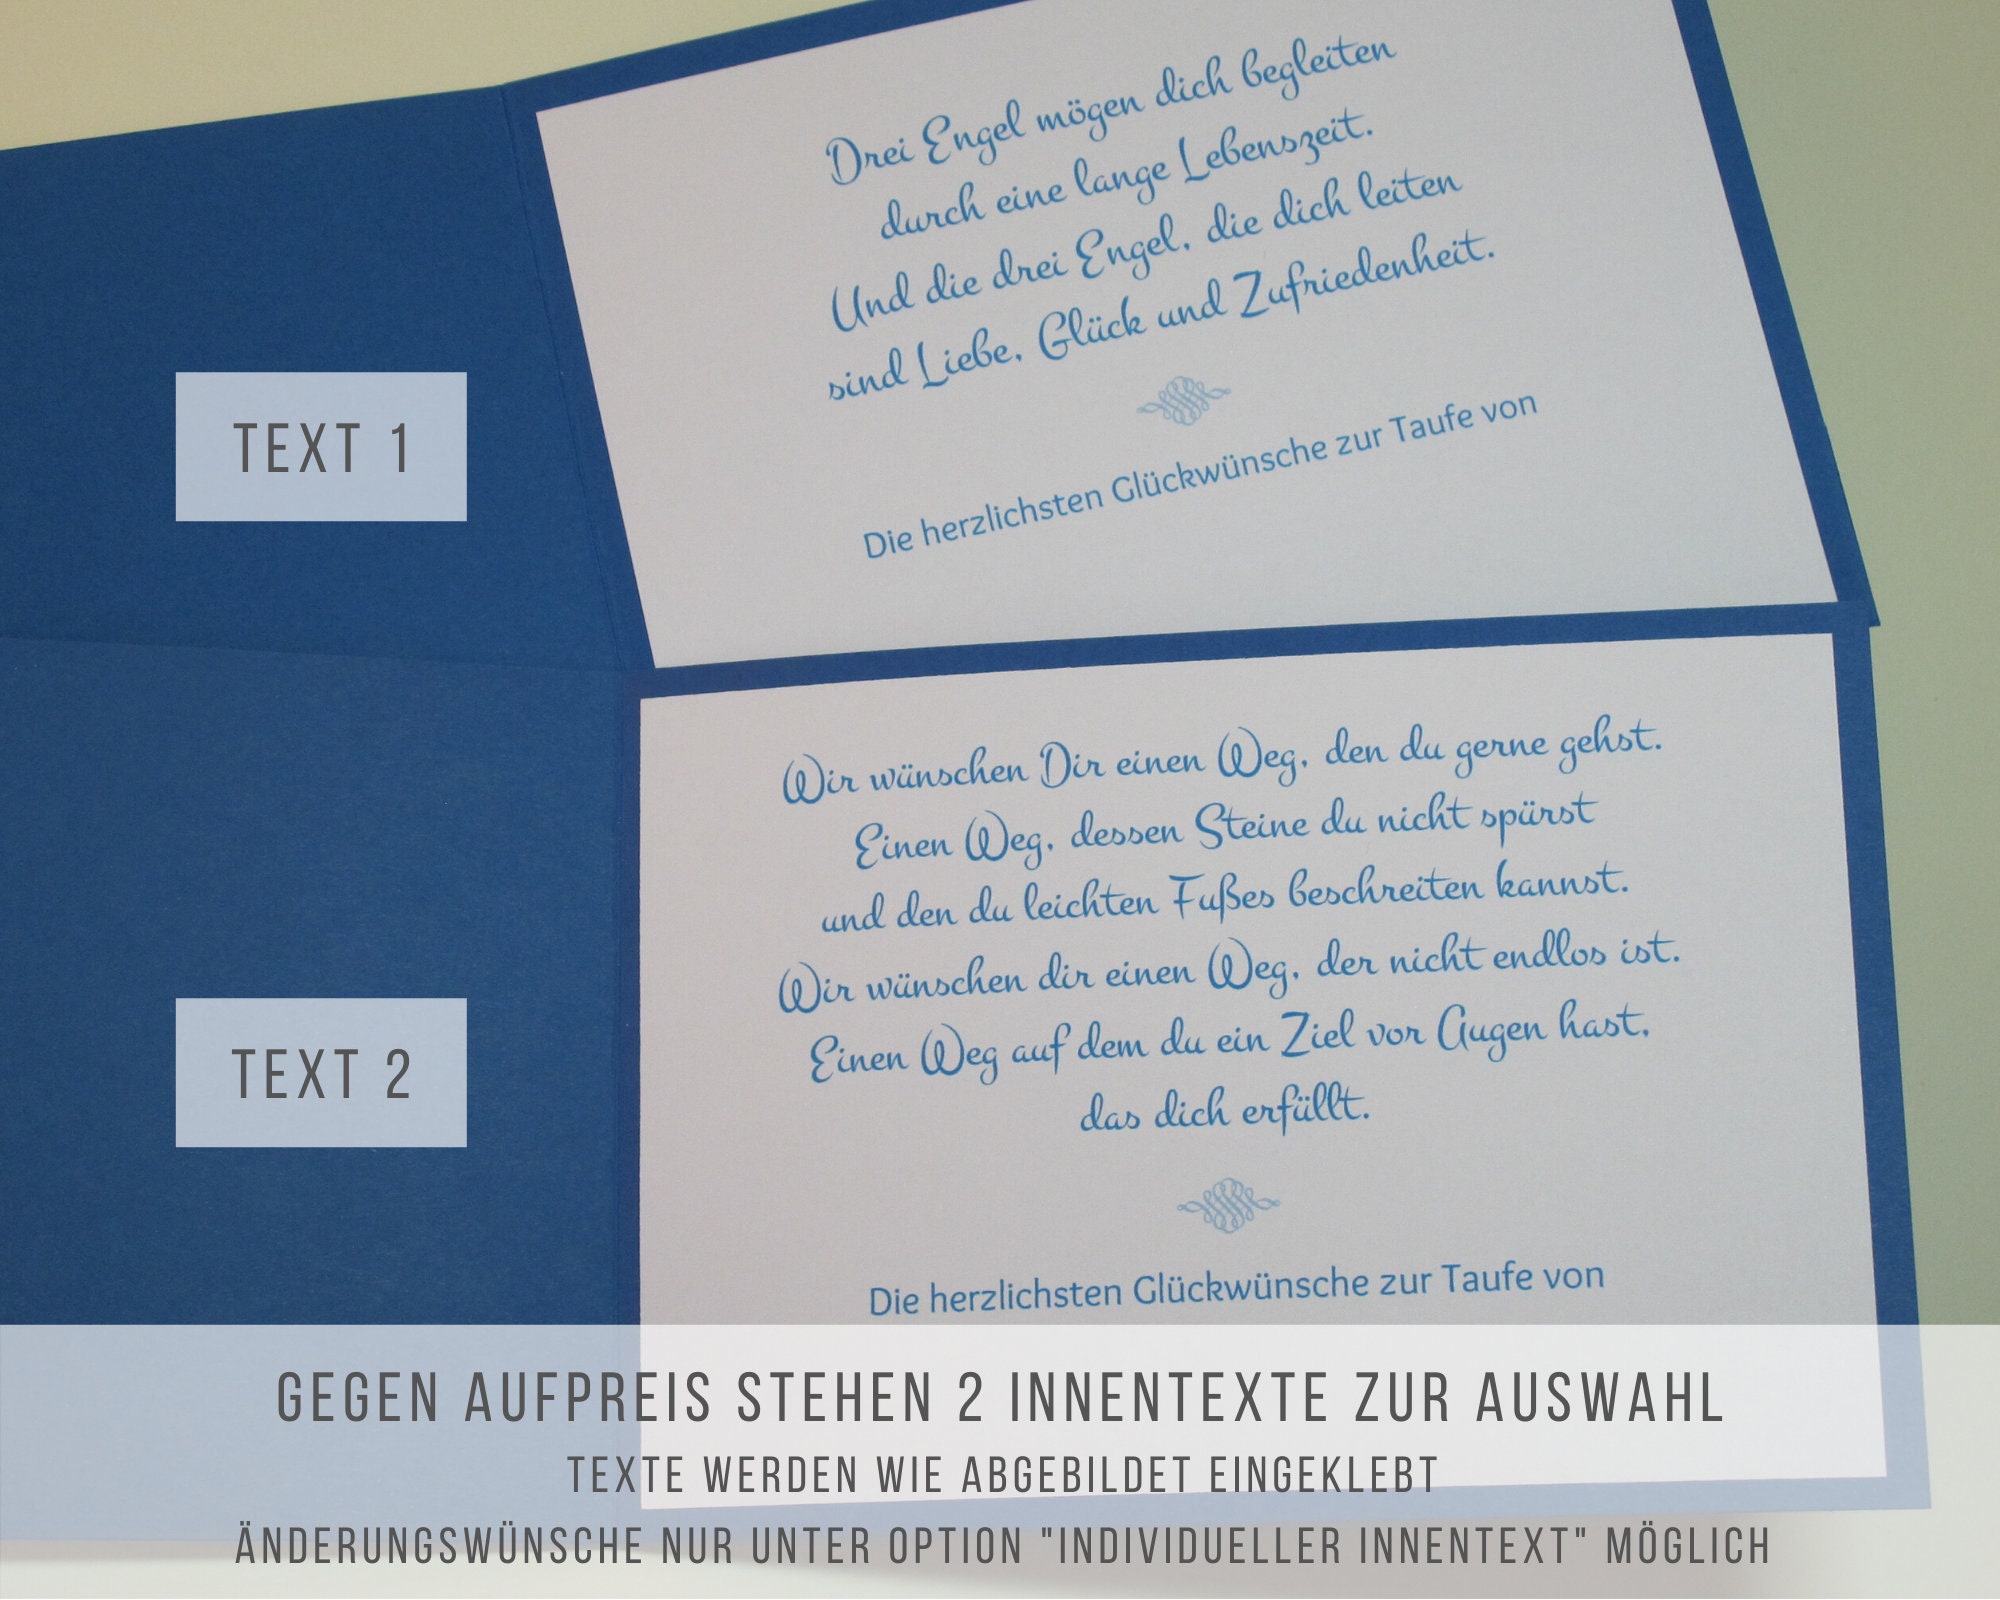 Drei Engel mögen dich begleiten
durch eine lange Lebenszeit.
Und die drei Engel, die dich leiten
sind Liebe, Glück und Zufriedenheit.
Die herzlichsten Glückwünsche zur Taufe von
TEXT 1
Wir wünschen Dir einen Weg, den du gerne gehst.
Einen Weg, dessen Steine du nicht spürst
und den du leichten Fußes beschreiten kannst.
Wir wünschen dir einen Weg, der nicht endlos ist.
Einen Weg auf dem du ein Ziel vor Augen hast,
das dich erfüllt.
Die herzlichsten Glückwünsche zur Taufe von
TEXT 2
GEGEN AUFPREIS STEHEN 2 INNENTEXTE ZUR AUSWAHL
TEXTE WERDEN WIE ABGEBILDET EINGEKLEBT
ÄNDERUNGSWÜNSCHE NUR UNTER OPTION "INDIVIDUELLER INNENTEXT" MÖGLICH